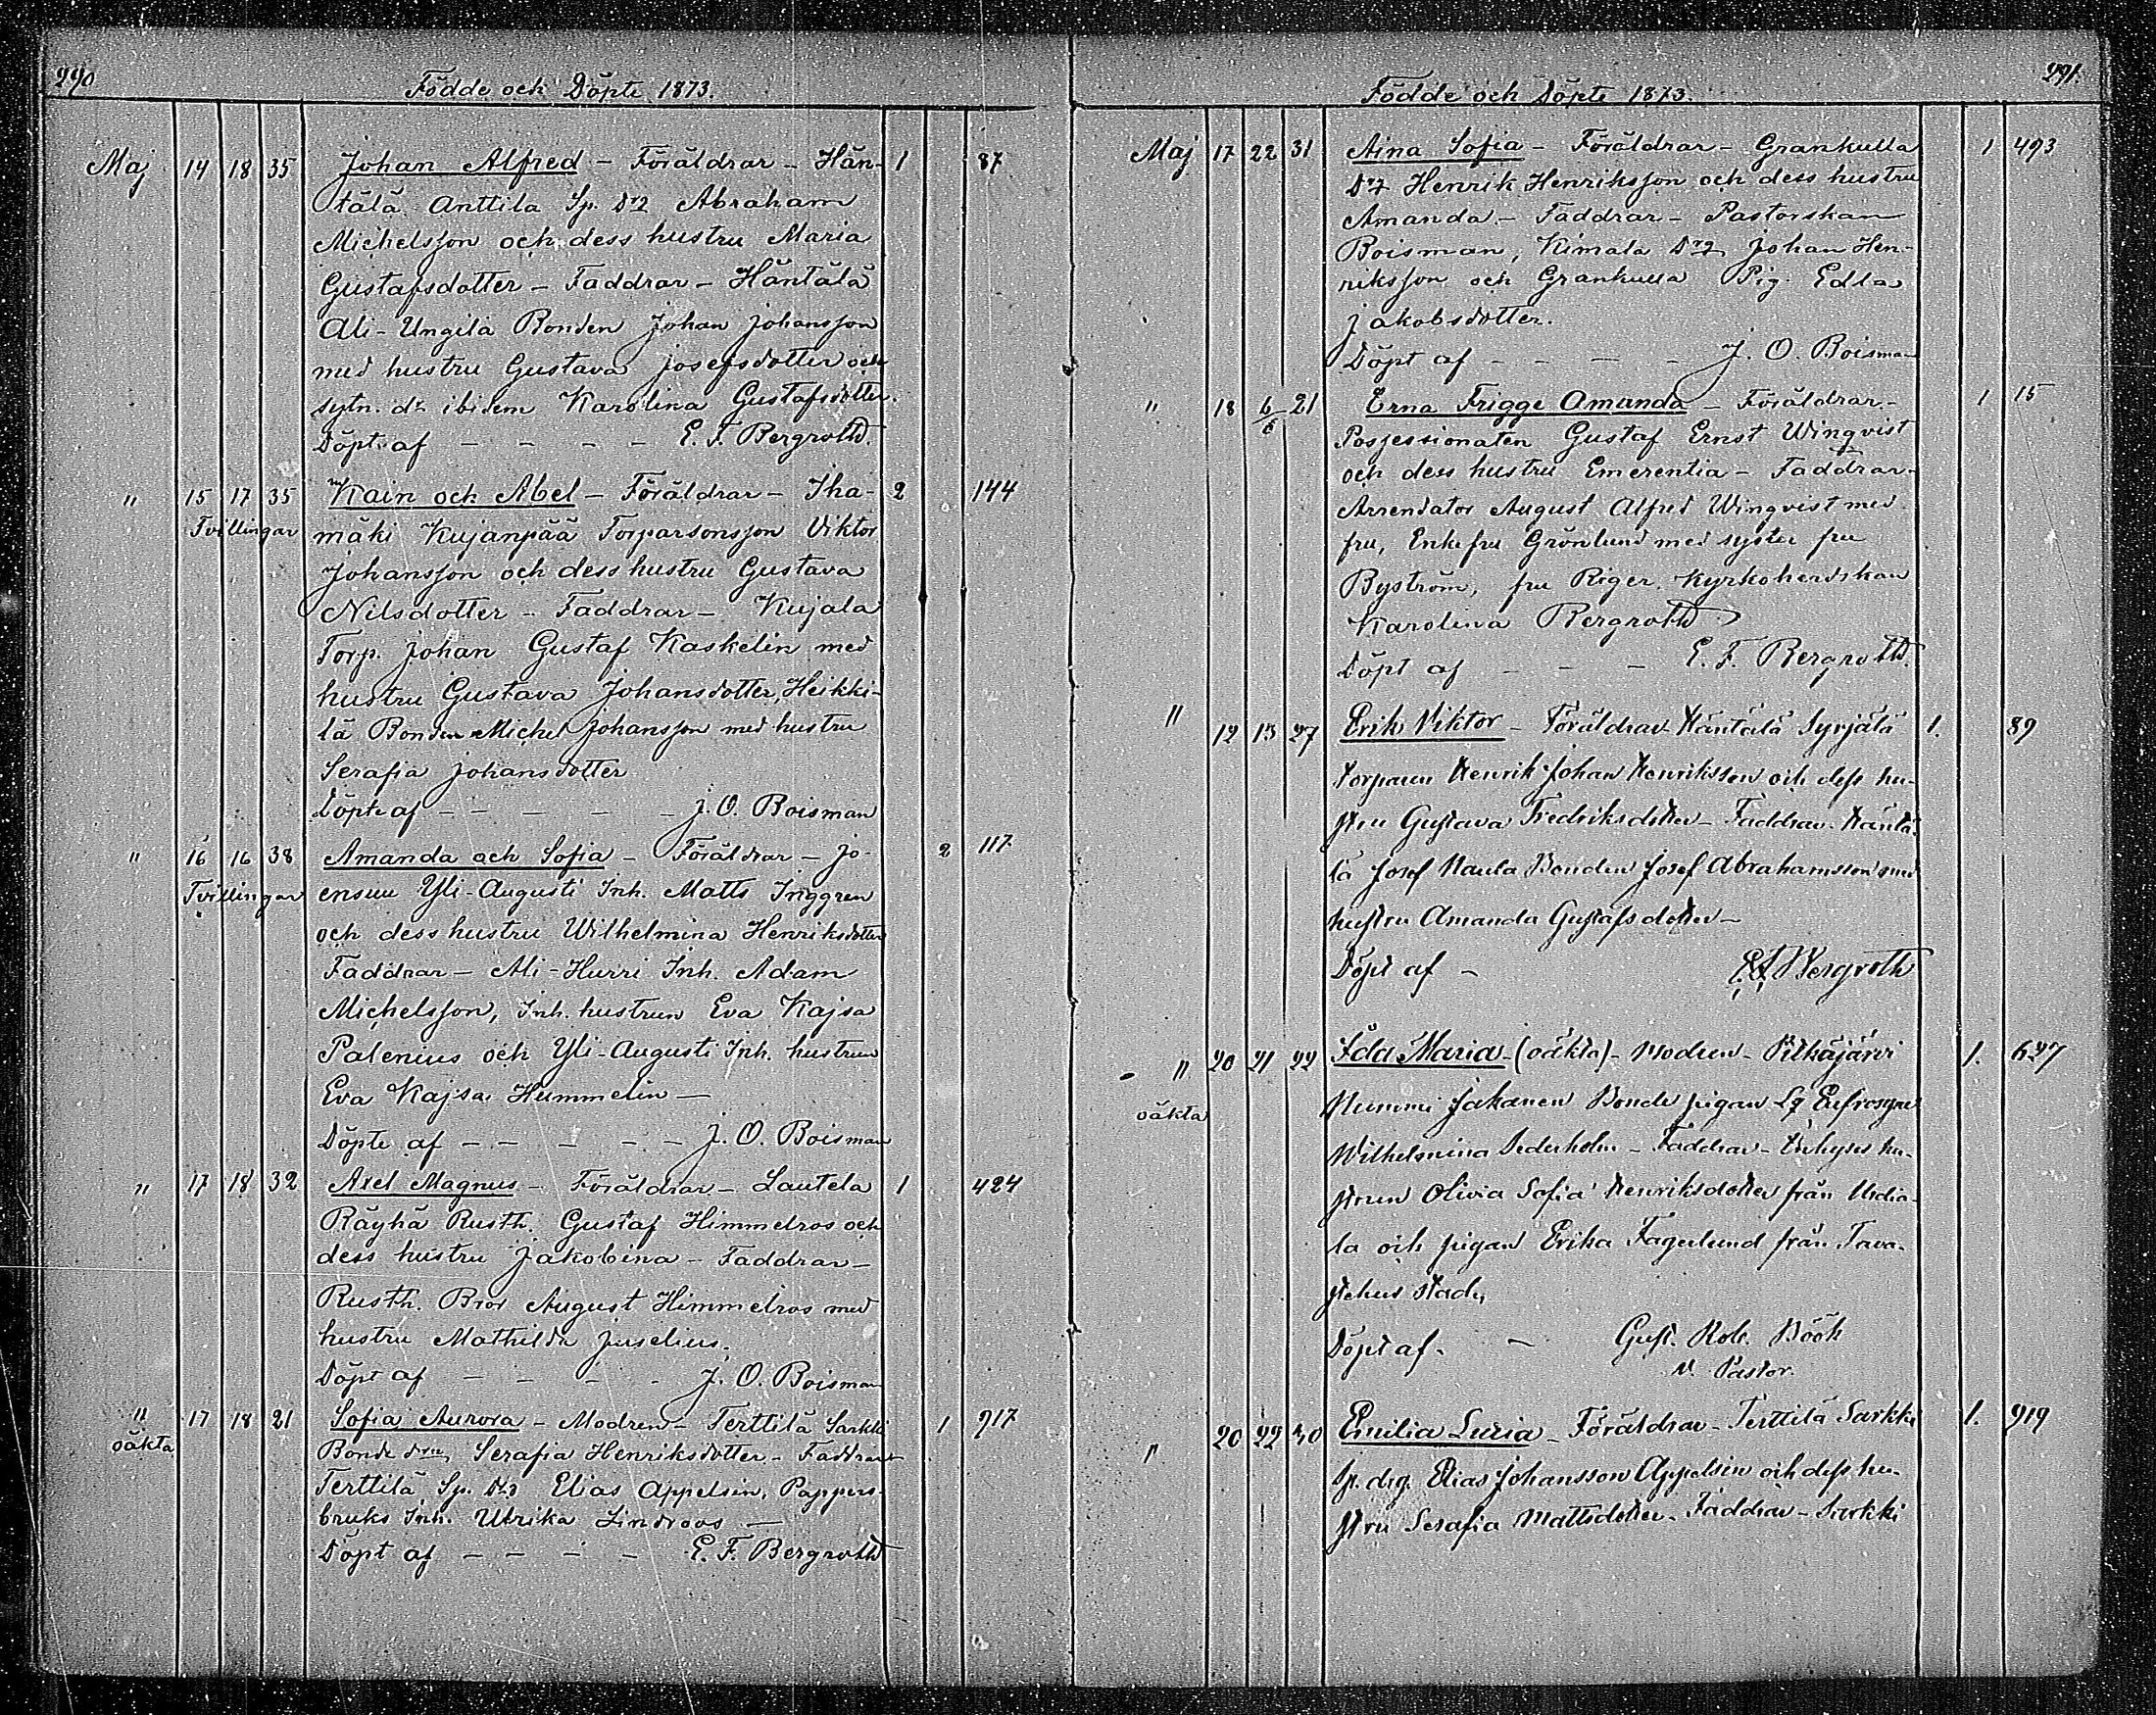 290
Födde och Döpte 1873.
Maj 14 18 35 Johan Alfred - Föräldrar - Hän- 1 87
tälä Anttila Sp. Drg Abraham
Michelsson och dess hustru Maria
Gustafsdotter - Faddrar - Häntälä
Ali-Ungila Bonden Johan Johansson
med hustru Gustava Josefsdotter och
sytn. dr ibidem Karolina Gustafsdotter.
Döpt af - - - - E. F. Bergroth.
" 15 17 35 Kain och Abel - Föräldrar - Iha- 2 144
Tvillingar mäki Kujanpää Torparsonsson Viktor
Johansson och dess hustru Gustava
Nilsdotter - Faddrar - Kujala
Torp. Johan Gustaf Kaskelin med
hustru Gustava Johansdotter, Heikki-
lä Bonden Michel Johansson med hustru
Serafia Johansdotter
Döpte af - - - - - J. O. Boisman
" 16 16 38 Amanda och Sofia - Föräldrar - Jo- 2 117
Tvillingar ensuu Yli-Augusti Inh. Matts Friggren
och dess hustru Wilhelmina Henriksdotter
Faddrar - Ali-Hurri Inh. Adam
Michelsson, Inh. hustrun Eva Kajsa
Palenius och Yli-Augusti Inh. hustrun
Eva Kajsa Hummelin -
Döpte af - - - - - J. O. Boisman
" 17 18 32 Axel Magnus - Föräldrar - Lautela 1 424
Räyhä Rusth. Gustaf Himmelros och
dess hustru Jakobina - Faddrar -
Rusth. Bror August Himmelros med
hustru Mathilda Juselius.
Döpt af - - - - J. O. Boisman
" 17 18 21 Sofia Aurora - Modren - Terttilä Sarkki 1 917
oäkta Bonde Serafia Henriksdotter - Faddrar
Terttilä Sp. Drg Elias Appelsin, Pappers-
bruks Inh. Ulrika Lindroos -
Döpt af - - - - E. F. Bergroth
291
Födde och Döpte 1873.
Maj 17 22 31 Aina Sofia - Föräldrar - Grankulla 1 493
Drg Henrik Henriksson och dess hustru
Amanda - Faddrar - Pastorskan
Boisman, Kimala Drg Johan Hen-
riksson och Grankulla Pig. Edla
Jakobsdotter.
Döpt af - - - - J. O. Boisman
" 18 6/6 21 Erna Frigge Amanda - Föräldrar - 1 15
Possessionaten Gustaf Ernst Winqvist
och dess hustru Emerentia - Faddrar -
Arrendator August Alfred Winqvist med
fru, Enkefru Grönlund med syster fru
Byström, fru Riger. Kyrkoherdskan
Karolina Bergroth
Döpt af - - - E. F. Bergroth.
" 12 13 27 Erik Viktor - Föräldrar Häntälä Syrjälä 1. 89
torparen Henrik Johan Henriksson och dess hu-
stru Gustava Fredriksdotter - Faddrar - Häntä-
lä Josef Naula Bonden Josef Abrahamsson med
hustru Amanda Gustafsdotter -
Döpt af - E. F. Bergroth
" 20 21 22 Ida Maria - (oäkta) - Modren - Pitkäjärvi 1. 627
oäkta Nummi Jakanen Bonde pigan Lg Eufrosyne
Wilhelmina Sederholm - Faddrar - Enhyses hu-
strun Olivia Sofia Henriksdotter från Urdia-
la och pigan Erika Fagerlund från Tava-
stehus stad,
Döpt af. - Gust. Rob. Böök
v. Pastor.
" 20 22 40 Emilia Lucia - Föräldrar - Terttilä Sarkki 1. 919
Sp. drg. Elias Johansson Appelsin och dess hu-
stru Serafia Mattsdotter - Faddrar - Sarkki